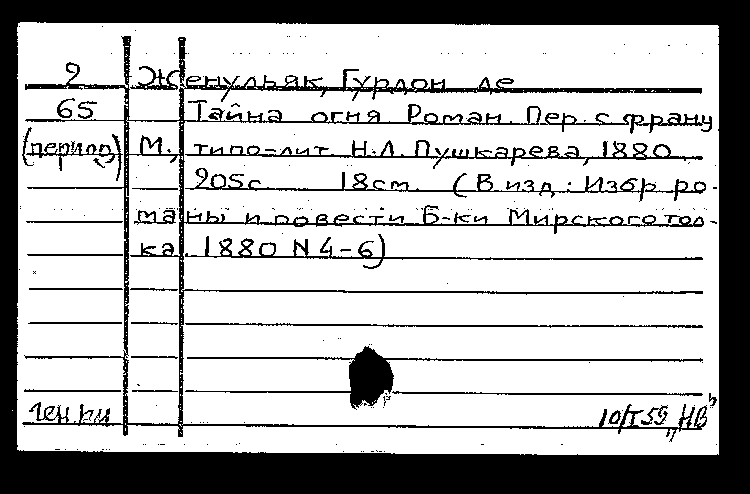 9 Женульяк, Гурдон де
65 Тайна огня Роман. Пер. с франц
(период) М., типо-лит. Н.Л. Пушкарева, 1880.
205с. 18см. (В изд.: Избр ро-
маны и повести Б-ки Мирского тол-
ка. 1880 N 4-6)
Ген.кат
10/I 59 „НВ”